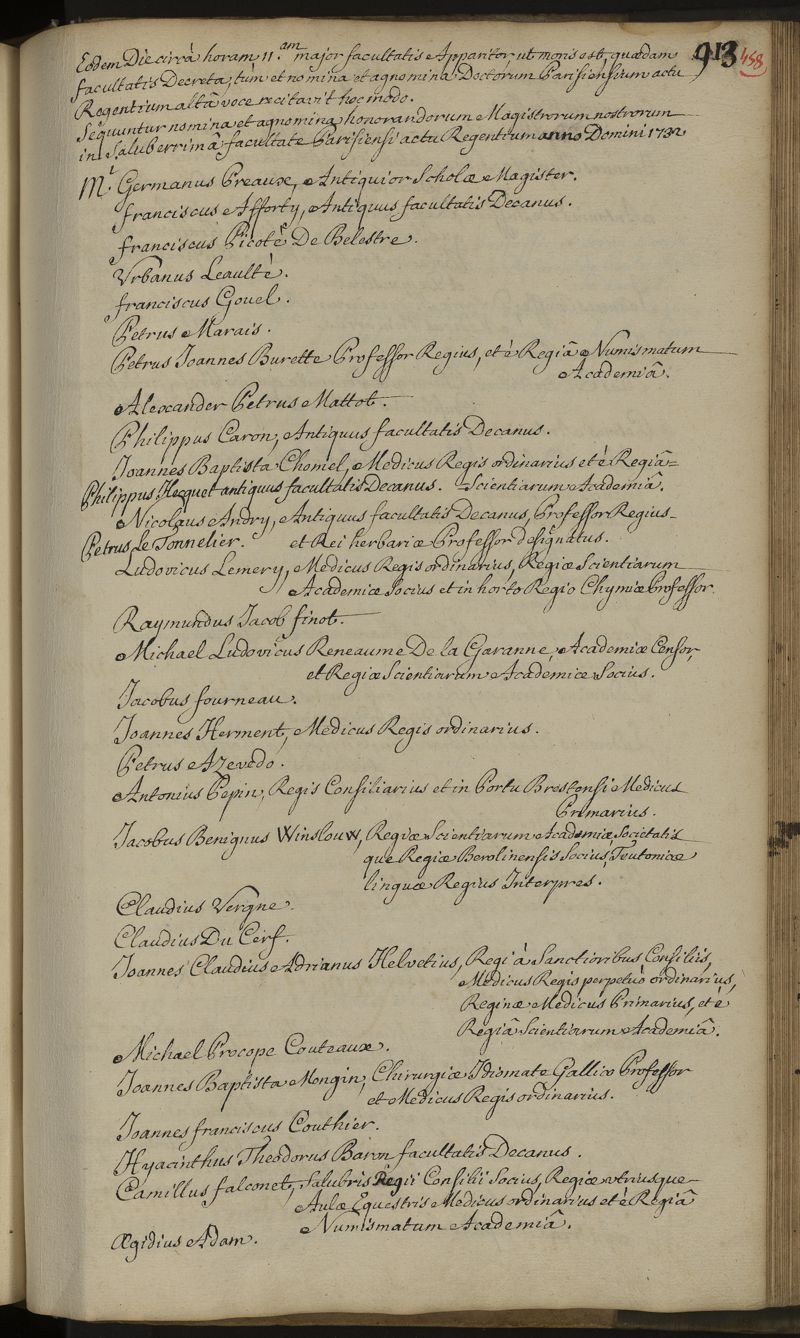 913
458
Eodem Die circà horam 11.am major facultatis Apparitor, ut moris est, quædam
facultatis Decreta, tùm et nomina et agnomina Doctorum Parisiensium actu
Regentium altâ voce recitavit hoc modo.
Sequuntur nomina et agnomina honorandorum Magistrorum nostrorum
in Saluberrimâ facultate Parisiensi actu Regentium anno Domini 1732
M.i Germanus Preaux, Antiquior Scholæ Magister.
franciscus Afforty, Antiquus facultatis Decanus.
franciscus Picoté De Belestre.
Urbanus Leaulté.
franciscus Gouel.
Petrus Marais.
Petrus Joannes Burette Professor Regius, et è Regiâ Numismatum
Academiâ.
Alexander Petrus Mattot.
Philippus Caron, Antiquus facultatis Decanus.
Joannes Baptista Chomel, Medicus Regis ordinarius et è Regiâ=
Philippus Hecquet antiquus facultatis Decanus. Scientiarum Academiâ.
Nicolaus Andry, Antiquus facultatis Decanus, Professor Regius
Petrus Le Tonnelier. et Rei herbariæ Professor designatus.
Ludovicus Lemery, Medicus Regis ordinarius, Regiæ Scientiarum
Academiæ Socius et in horto Regio Chymiæ Professor.
Raymundus Jacob finot.
Michael Ludovicus Reneaume De la Garanne, Academiæ Censor,
et Regiæ Scientiarum Academiæ Socius.
Jacobus fourneau.
Joannes Herment, Medicus Regis ordinarius.
Petrus Azevedo.
Antonius Pepin, Regis Consiliarius et in Portu Brestensi Medicus
Primarius.
Jacobus Benignus Winslouw, Regiæ Scientiarum Academiæ, Societatis
que Regiæ Berolinensis Socius, Teutonicæ
linguæ Regius Interpres.
Claudius Vergne.
Claudius Du Cerf.
Joannes Claudius Adrianus Helvetius, Regi à Sanctioribus Consiliis,
Medicus Regis perpetuò ordinarius,
Reginæ Medicus Primarius, et è
Regiâ Scientiarum Academiâ.
Michael Procope Couteaux.
Joannes Baptista Mongin, Chirurgiæ Idiomate Gallico Professor
et Medicus Regis ordinarius.
Joannes franciscus Couthier.
Hyacinthus Theodorus Baron facultatis Decanus.
Camillus falconet, Salubris Regii Consilii Socius, Regiæ utriusque
Aulæ Equestris Medicus ordinarius et è Regiâ
Numismatum Academiâ.
Ægidius Adam.